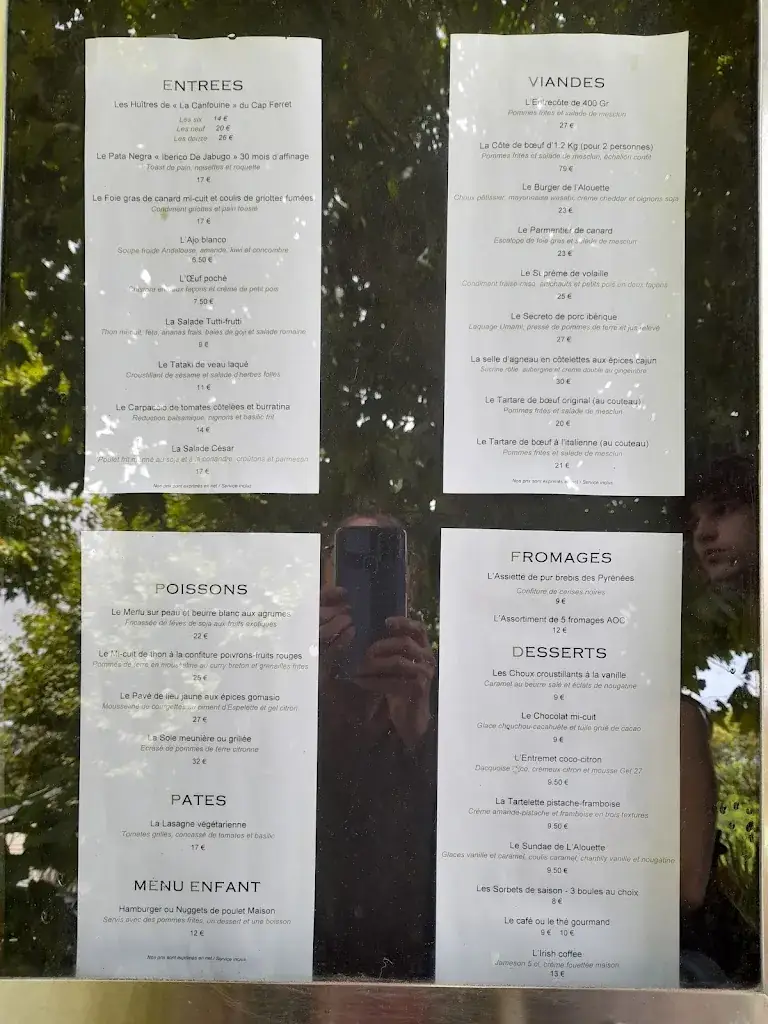 ENTREES
Les Huîtres de « La Canfouine » du Cap Ferret
Les six 14 €
Les neuf 20 €
Les douze 26 €
Le Pata Negra « Iberico De Jabugo » 30 mois d'affinage
Toast de pain, noisettes et roquette
17 €
Le Foie gras de canard mi-cuit et coulis de griottes fumées
Condiment griottes et pain toasté
17 €
L'Ajo blanco
Soupe froide Andalouse, amande, kiwi et concombre
6.50 €
L'Œuf poché
façons et crème de petit pois
7.50 €
La Salade Tutti-frutti
Thon mi-cuit, feta, ananas frais, baies de goji et salade romaine
9 €
Le Tataki de veau laqué
Croustillant de sésame et salade d'herbes folles
11 €
Le Carpaccio de tomates côtelées et burratina
Réduction balsamique, pignons et basilic frit
14 €
La Salade César
Poulet frit mariné au soja et à la coriandre, croûtons et parmesan
17 €
Nos prix sont exprimés en net / Service inclus
VIANDES
L'Entrecôte de 400 Gr
Pommes frites et salade de mesclun
27 €
La Côte de bœuf d'1.2 Kg (pour 2 personnes)
Pommes frites et salade de mesclun, échalion confit
79 €
Le Burger de l'Alouette
Choux pâtissier, mayonnaise wasabi, crème cheddar et oignons soja
23 €
Le Parmentier de canard
Escalope de foie gras et salade de mesclun
23 €
Le Suprême de volaille
Condiment fraise-miso, artichauts et petits pois en deux façons
25 €
Le Secreto de porc ibérique
Laquage Umami, pressé de pommes de terre et jus relevé
27 €
La selle d'agneau en côtelettes aux épices cajun
Sucrine rôtie, aubergine et crème double au gingembre
30 €
Le Tartare de bœuf original (au couteau)
Pommes frites et salade de mesclun
20 €
Le Tartare de bœuf à l'italienne (au couteau)
Pommes frites et salade de mesclun
21 €
Nos prix sont exprimés en net / Service inclus
POISSONS
Le Merlu sur peau et beurre blanc aux agrumes
Fricassée de fèves de soja aux fruits exotiques
22 €
Le Mi-cuit de thon à la confiture poivrons-fruits rouges
Pommes de terre en mousseline au curry breton et grenailles frites
25 €
Le Pavé de lieu jaune aux épices gomasio
Mousseline de courgettes au piment d'Espelette et gel citron
27 €
La Sole meunière ou grillée
Ecrasé de pommes de terre vitronne
32 €
PATES
La Lasagne végétarienne
Tomates grillés, concassé de tomates et basilic
17 €
MENU ENFANT
Hamburger ou Nuggets de poulet Maison
Servis avec des pommes frites, un dessert et une boisson
12 €
Nos prix sont exprimés en net / Service inclus
FROMAGES
L'Assiette de pur brebis des Pyrénées
Confiture de cerises noires
9 €
L'Assortiment de 5 fromages AOC
12 €
DESSERTS
Les Choux croustillants à la vanille
Caramel au beurre salé et éclats de nougatine
9 €
Le Chocolat mi-cuit
Glace chouchou-cacahuète et tuile grué de cacao
9 €
L'Entremet coco-citron
Dacquoise coco, crémeux citron et mousse Get 27
9.50 €
La Tartelette pistache-framboise
Crème amande-pistache et framboise en trois textures
9.50 €
Le Sundae de L'Alouette
Glaces vanille et caramel, coulis caramel, chantilly vanille et nougatine
9.50 €
Les Sorbets de saison - 3 boules au choix
8 €
Le café ou le thé gourmand
9 € 10 €
L'Irish coffee
Jameson 5 cl, crème fouettée maison
13 €